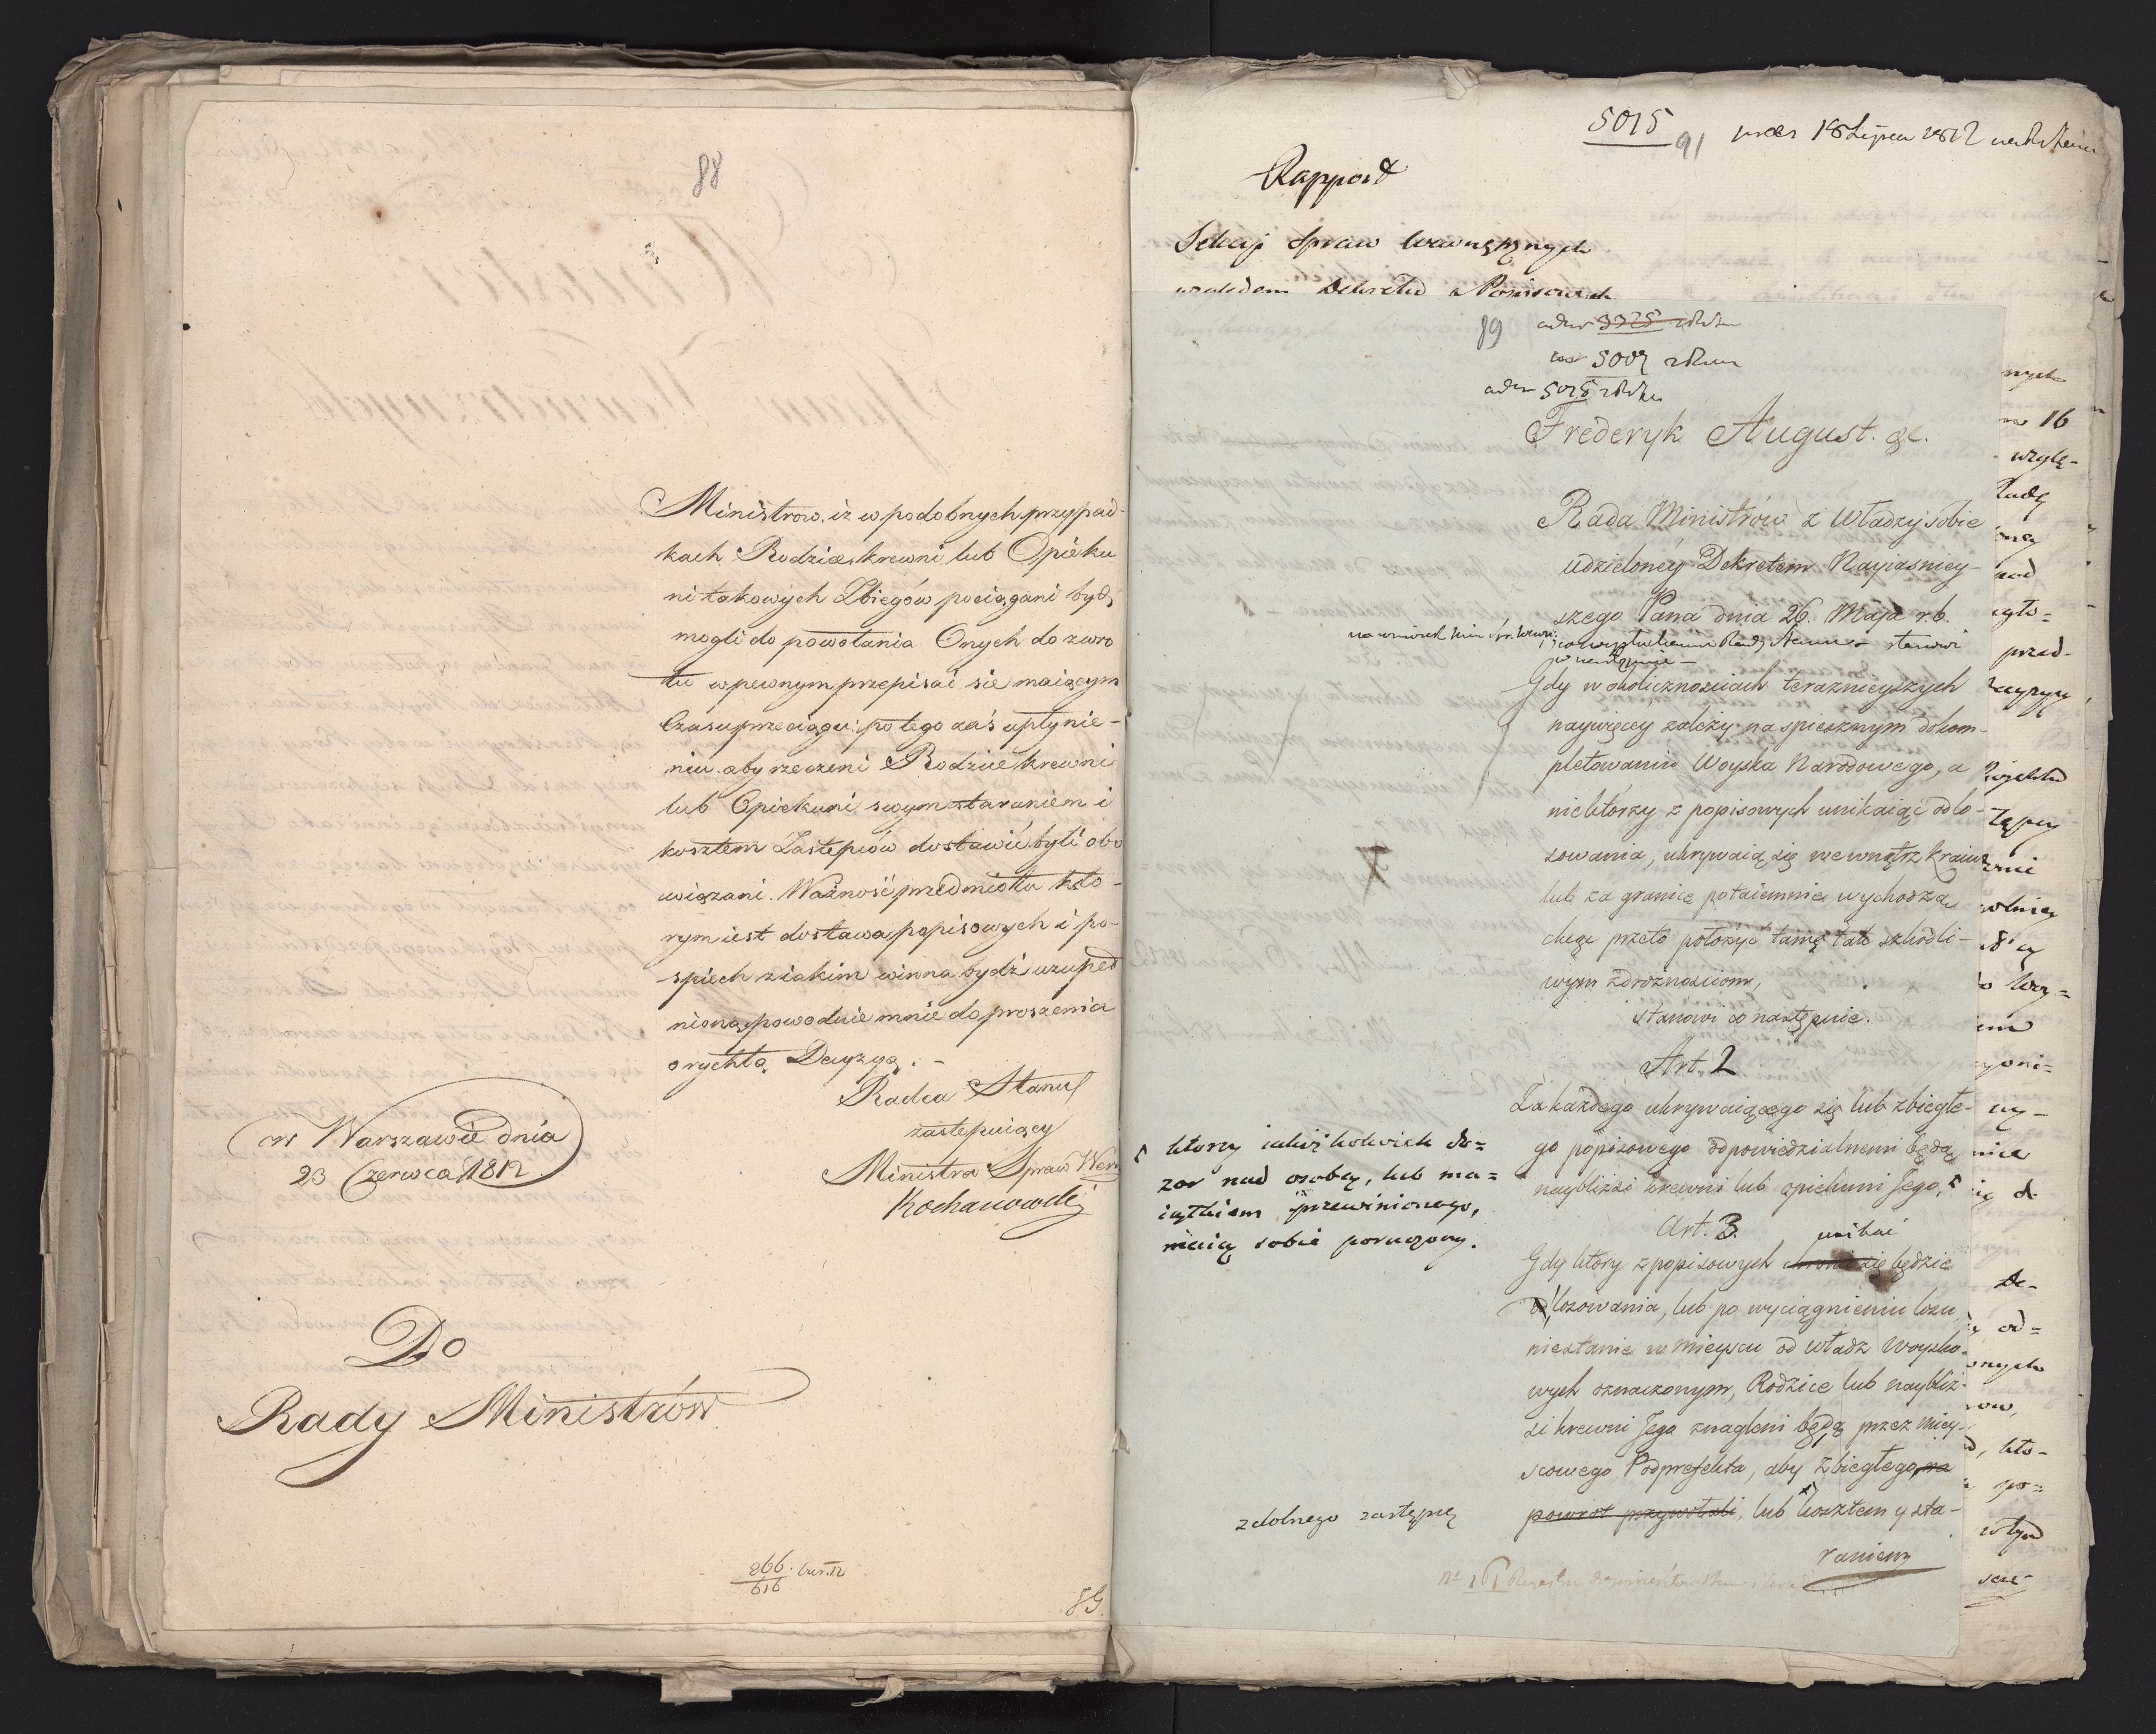 88
Ministrow, iż w podobnych przypad-
kach Rodzice, krewni lub Opieku
ni takowych Zbiegów pociągani bydź
mogli do powołania Onych do zwro
tu w pewnym przepisać sie maiącym
Czasu przeciągu: po tego zaś upłynie-
niu aby rzeczeni Rodzice krewni
lub Opiekuni swym staraniem i
kosztem Zastepców dostawić byli obo
wiązani. Ważność przedmiotu któ-
rym iest dostawa popisowych i po-
spiech z iakim winna bydź uzupeł
nioną, powoduie mnie do proszenia
o rychłą Decyzyą. -
Radca Stanu
zastepuiący
Ministra Spraw Wew
Kochanowski
w Warszawie dnia
23 Czerwca 1812
Do
Rady Ministrów
866.
616
89
5015
91
18 Lipca 1812
Rapport
Sekcyi Spraw Wewnętrznych
względem Dekretu o Popisowych
89
3325
5007
5015
Frederyk August. &c.
Rada Ministrów z Władzy sobie
udzieloney Dekretem Nayiasniey-
szego Pana dnia 26. Maja r.b.
na wniosek Min. Spr. Wewn.
i po wysłuchaniu Rady Stanu stanowi
co następuie -
Gdy w okolicznościach teraznieyszych
naywięcey zależy na spiesznym dokom-
pletowaniu Woyska Narodowego, a
niektórzy z popisowych unikaiąc od lo-
sowania, ukrywaią się wewnątrz kraiu
lub za granicę potaiemnie wychodzą
chcąc przeto położyć tamę tak szkodli-
wym zdrożnościom,
stanowi co następuie.
Art. 2
Za każdego ukrywaiącego się lub zbiegłe-
go popisowego odpowiedzialnemi będą
naybliżsi krewni lub opiekuni Jego,
którzy iakiżkolwiek do=
zor nad osobą, lub ma=
iątkiem przewinionego,
maią sobie poruczony.
Art. 3.
unikać
Gdy który z popisowych chronić się będzie
od losowania, lub po wyciągnieniu losu
niestanie w mieyscu od władz woysko-
wych oznaczonym, Rodzice lub naybliż-
si krewni Jego znagleni będą przez miey-
scowego Podprefekta, aby zbiegłego na
powrot przywołali, lub kosztem y sta-
zdolnego zastępcę
raniem
nych
16
wzglę-
Radę
przed-